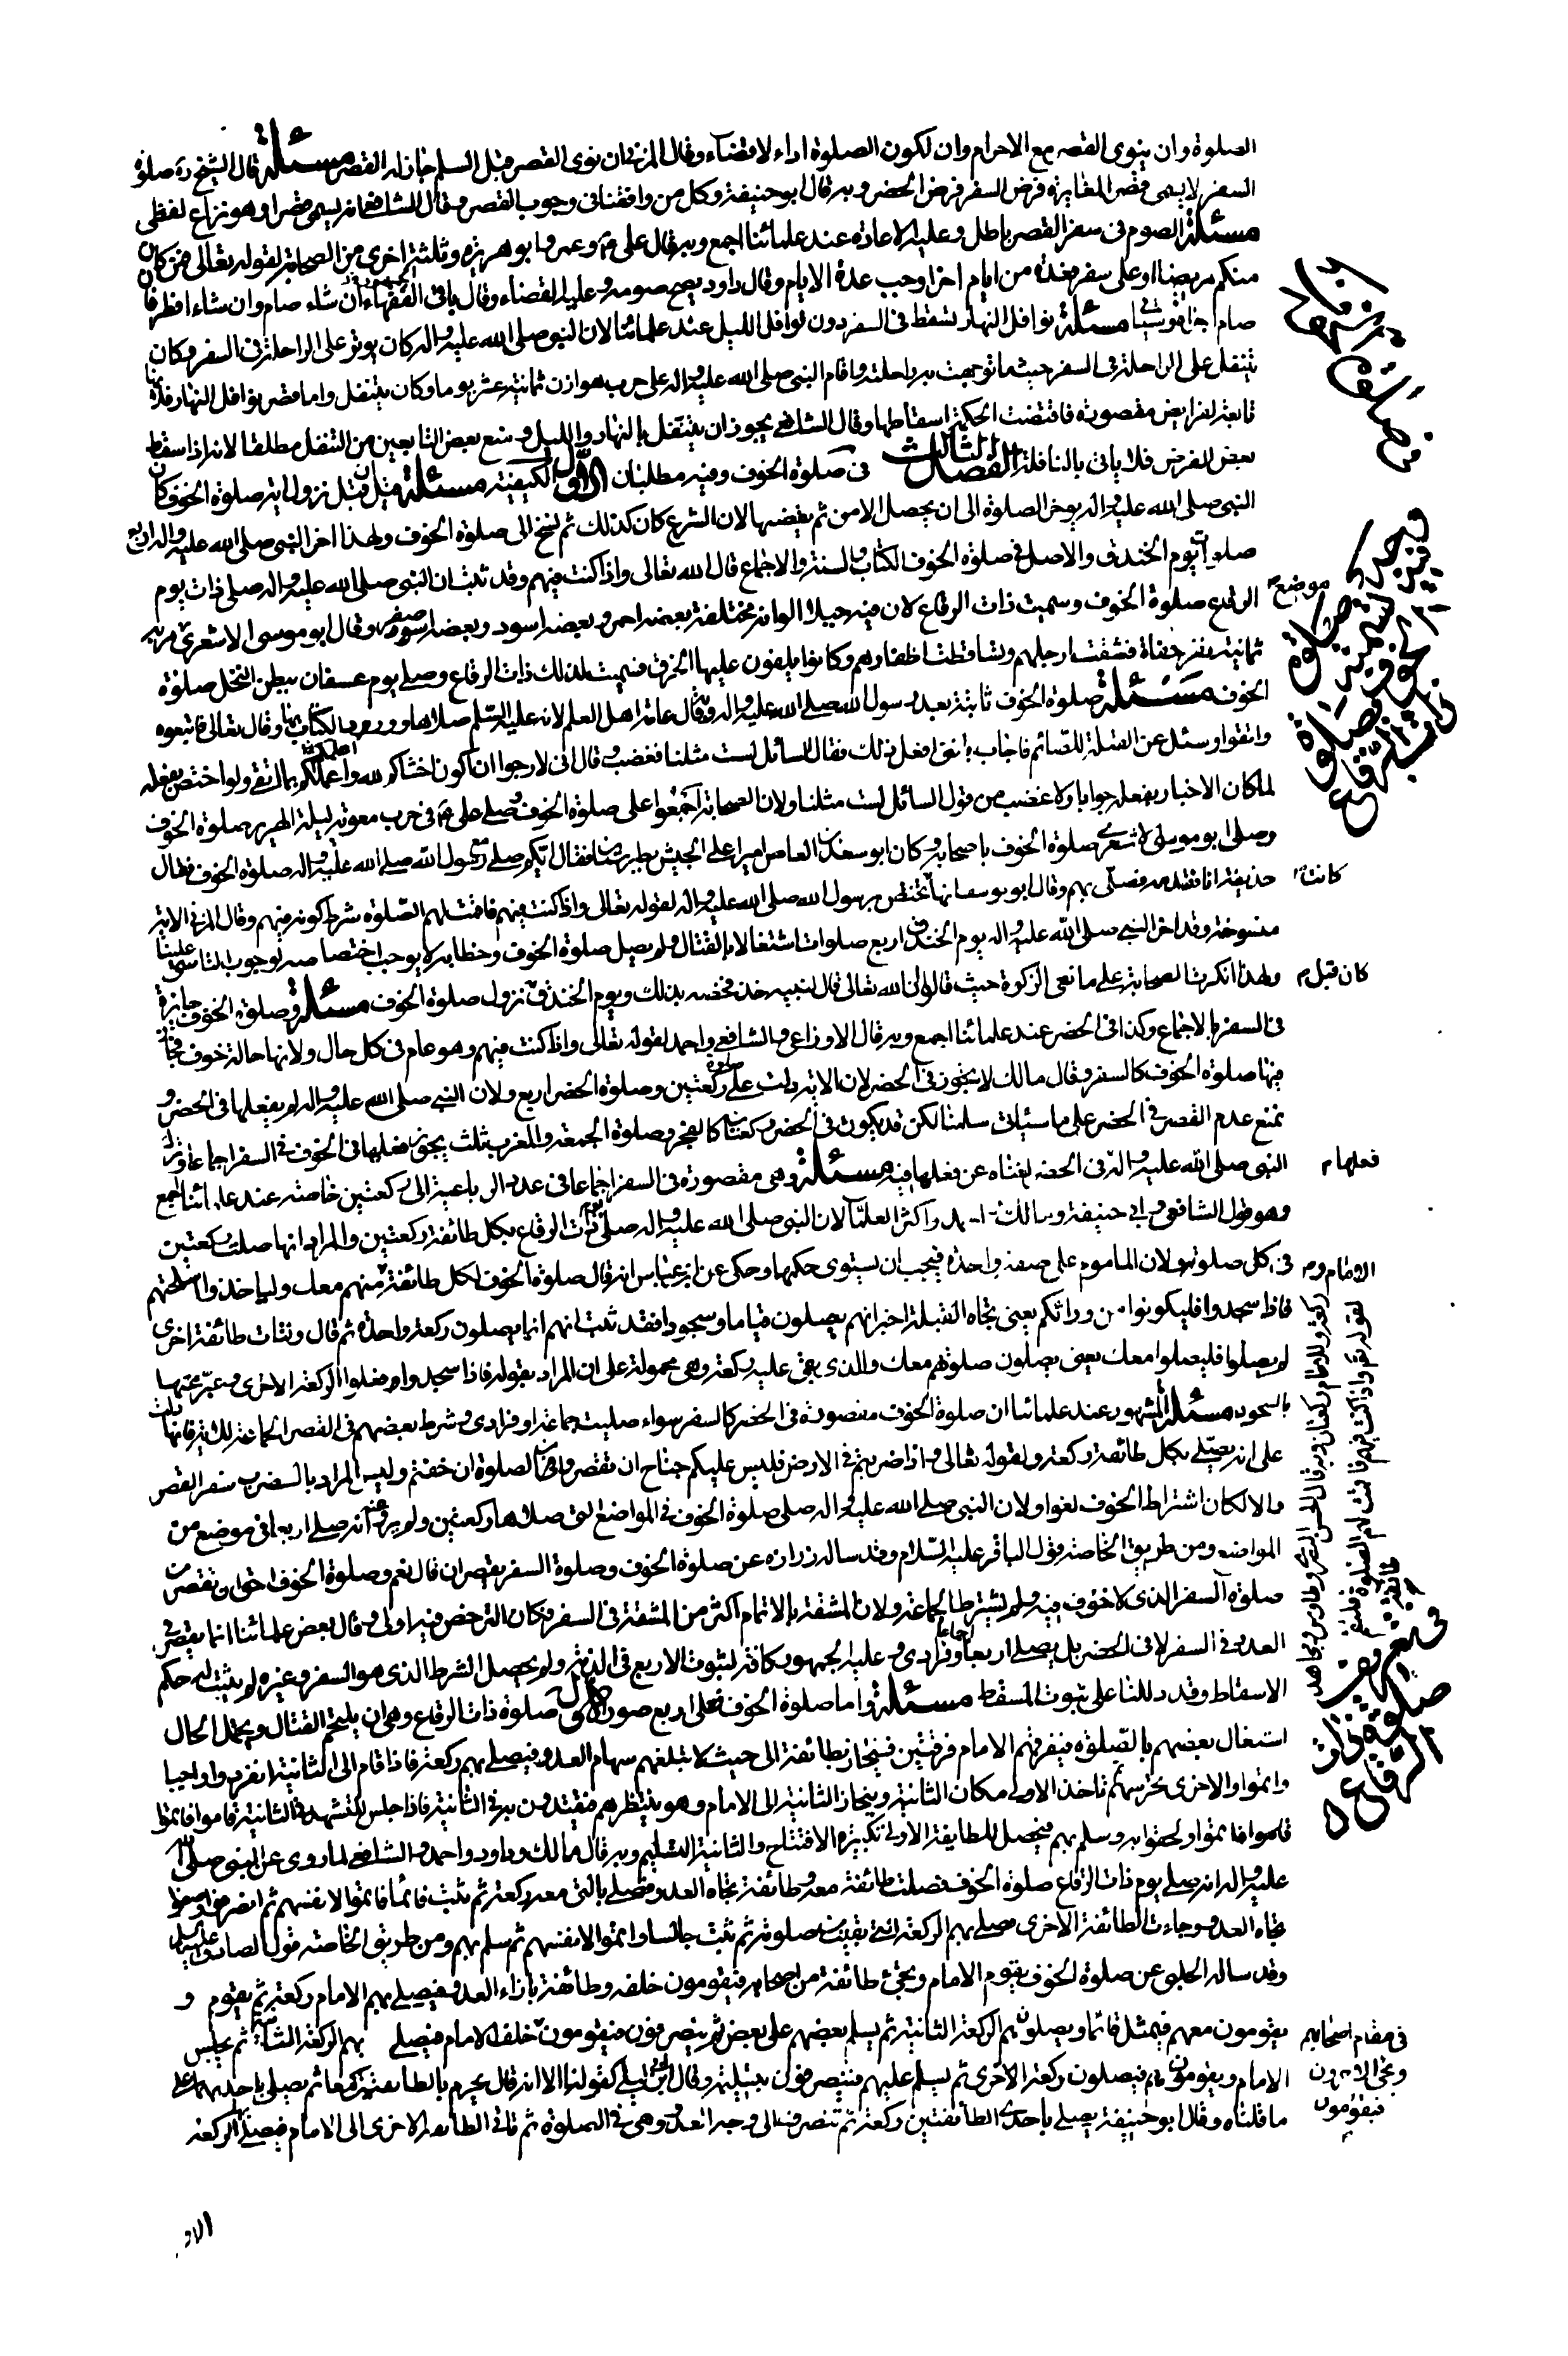 الصلوة وان ينوى القصر مع الاحرام وان لكون الصلوة اداء لا قضاء وقال المزنى ان نوى القصر قبل السلم جاز له القصر مسئلة قال الشيخ ره صلوة
السفر لا يسمى قصرا لمغايرة فرض السفر فرض الحضر وبه قال ابو حنيفة وكل من وافقنا فى وجوب القصر وقال الشافعى انه يسمى قصرا وهو نزاع لفظى
مسئلة الصوم فى سفر القصر باطل وعليه الاعادة عند علمائنا اجمع وبه قال على ع وعمر وابو هريرة وثلثة اخرى من الصحابة لقوله تعالى فمن كان
منكم مريضا او على سفر فعدة من ايام اخر اوجب عدة الايام وقال داود يصح صومه وعليه القضاء وقال باقى الفقهاء ان شاء صام وان شاء افطر فان
صام اجزاه مسئلة نوافل النهار تسقط فى السفر دون نوافل الليل عند علمائنا لان النبى صلى الله عليه واله كان يوتر على الراحلة فى السفر وكان
يتنفل على الراحلة فى السفر حيث ما توجهت به راحلته واقام النبى صلى الله عليه واله على حرب هوازن ثمانية عشر يوما وكان يتنفل واما قصر نوافل النهار فلانها
تابعة لفرايض مقصورة فاقتضت الحكمة اسقاطها وقال الشافعى يجوز ان يتنفل بالنهار والليل ومنع بعض التابعين من التنفل مطلقا لانه اذا سقط
بعض الفرض فلا ياتى بالنافلة الفصل الثالث فى صلوة الخوف وفيه مطلبان الاول الكيفية مسئلة قيل ان قبل نزول اية صلوة الخوف كان
النبى صلى الله عليه واله يوخر الصلوة الى ان يحصل الامن ثم يقضيها لان الشرع كان كذلك ثم نسخ الى صلوة الخوف ولهذا اخر النبى صلى الله عليه واله اربع
صلوات يوم الخندق والاصل فى صلوة الخوف الكتاب والسنة والاجماع قال الله تعالى واذا كنت فيهم وقد ثبت ان النبى صلى الله عليه واله صلى ذات يوم
الرقاع صلوة الخوف وسميت ذات الرقاع لان فيه جبلا الوانه مختلفة بعضه احمر وبعضه اسود وبعضه اصفر وقال ابو موسى الاشعرى مر به
ثمانية نفر حفاة فشقت ارجلهم وتساقطت اظفارهم وكانوا يلفون عليها الخرق فسميت لذلك ذات الرقاع وصلى يوم عسفان ببطن النخل صلوة
الخوف مسئلة صلوة الخوف ثابتة بعد رسول الله صلى الله عليه واله وقال عامة اهل العلم لانه عليه السلم صلاها وورد الكتاب بها وقال تعالى فاتبعوه
واتقوا وسئل عن القبلة للصائم فاجاب باننى افعل ذلك فقال السائل لست مثلنا فغضب وقال انى لارجوا ان اكون اخشاكم لله واعلمكم بما اتقى ولو اختص بفعله
لما كان الاخبار بفعله جوابا ولا غضب من قول السائل لست مثلنا ولان الصحابة اجمعوا على صلوة الخوف وصلى على ع فى حرب معوية ليلة الهرير صلوة الخوف
وصلى ابو موسى الاشعرى صلوة الخوف باصحابه وكان ابو سعد بن العاص اميرا على الجيش بطبرستان فقال ايكم صلى مع رسول الله صلى الله عليه واله صلوة الخوف فقال
حذيفة انا فقدمه فصلى بهم وقال ابو يوسف انها تختص برسول الله صلى الله عليه واله لقوله تعالى واذا كنت فيهم فاقمت لهم الصلوة شرط كونه فيهم وقال المزنى الاية
منسوخة وقد اخر النبى صلى الله عليه واله يوم الخندق اربع صلوات اشتغالا بالقتال ولم يصل صلوة الخوف وخطابه لا يوجب اختصاصه لوجوب التاسى علينا
ولهذا انكرت الصحابة على مانعى الزكوة حيث قالوا ان الله تعالى قال لنبيه خذ فخصه بذلك ويوم الخندق نزول صلوة الخوف مسئلة وصلوة الخوف جايزة
فى السفر بالاجماع وكذا فى الحضر عند علمائنا اجمع وبه قال الاوزاعى والشافعى واحمد لقوله تعالى واذا كنت فيهم وهو عام فى كل حال ولانها حالة خوف فجاز
فيها صلوة الخوف كالسفر وقال مالك لا يجوز فى الحضر لان الاية دلت على صلوة ركعتين وصلوة الحضر اربع ولان النبى صلى الله عليه واله لم يفعلها فى الحضر و
نمنع عدم القصر فى الحضر على ما سياتى سلمنا لكن قد يكون فى الحضر ركعتان كالفجر وصلوة الجمعة والمغرب ثلث يجوز فعلها فى الخوف فى السفر اجماعا وترك
النبى صلى الله عليه واله فى الحضر لغناه عن فعلها فيه مسئلة وهى مقصورة فى السفر اجماعا فى عدد الرباعية الى ركعتين خاصة عند علمائنا اجمع
وهو قول الشافعى وابى حنيفة ومالك واحمد واكثر العلماء لان النبى صلى الله عليه واله صلى يوم ذات الرقاع بكل طائفة ركعتين والمراد انها صلت ركعتين
فى كل صلوته ولان الماموم على صفة واحدة فيجب ان يستوى حكمها وحكى عن ابن عباس انه قال صلوة الخوف لكل طائفة منهم معك ولياخذوا اسلحتهم
فاذا سجدوا فليكونوا من ورائكم يعنى تجاه القبلة اخبر انهم يصلون قياما وسجودا فقد ثبت انهم انما يصلون ركعة واحدة ثم قال ولتات طائفة اخرى
لم يصلوا فليصلوا معك يعنى يصلون صلوتهم معك والذى بقى عليه ركعة وهى محمولة على ان المراد بقوله فاذا سجدوا وفعلوا الركعة الاخرى وعبر عنها
بالسجود مسئلة المشهور عند علمائنا ان صلوة الخوف مقصورة فى الحضر كالسفر سواء صليت جماعة او فرادى وشرط بعضهم فى القصر الجماعة للاية فانها دلت
على انه يصلى بكل طائفة ركعة ولقوله تعالى واذا ضربتم فى الارض فليس عليكم جناح ان تقصروا من الصلوة ان خفتم وليس المراد بالضرب سفر القصر
والا لكان اشتراط الخوف لغوا ولان النبى صلى الله عليه واله صلى صلوة الخوف فى المواضع التى صلاها ركعتين ولم يرو عنه انه صلى اربعا فى موضع من
المواضع ومن طريق الخاصة قول الباقر عليه السلام وقد ساله زرارة عن صلوة الخوف وصلوة السفر يقصران قال نعم وصلوة الخوف احق ان تقصر من
صلوة السفر الذى لا خوف فيه ولم يشترط الجماعة ولان المشقة بالاتمام اكثر من المشقة فى السفر فكان الترخص فيه اولى وقال بعض علمائنا انما يقصر فى
العدد فى السفر لا فى الحضر بل يصلى اربعا جماعة وفرادى وعليه الجمهور كافة لثبوت الاربع فى الذمة ولم يحصل الشرط الذى هو السفر وغيره لم يثبت له حكم
الاسقاط وقد دللنا على ثبوت المسقط مسئلة واما صلوة الخوف فعلى اربع صور الاولى صلوة ذات الرقاع وهى ان يلتحم القتال ويحتمل الحال
اشتغال بعضهم بالصلوة فيفرقهم الامام فرقتين فينحاز بطائفة الى حيث لا تبلغهم سهام العدو فيصلى بهم ركعة فاذا قام الى الثانية انفردوا واجبا
واتموا والاخرى تحرسهم ثم تاخذ الاولى مكان الثانية وينحاز الثانية الى الامام وهو ينتظرهم فيقتدون به فى الثانية فاذا جلس للتشهد فى الثانية قاموا فاتموا
ولحقوا به وسلم بهم فيحصل للطايفة الاولى تكبيرة الافتتاح والثانية التسليم وبه قال مالك وداود واحمد والشافعى لما روى عن النبى صلى الله
عليه واله انه صلى يوم ذات الرقاع صلوة الخوف فصلت طائفة معه وطائفة تجاه العدو فصلى بالتى معه ركعة ثم ثبت قائما فاتموا لانفسهم ثم انصرفوا وصفوا
تجاه العدو وجاءت الطائفة الاخرى فصلى بهم الركعة التى بقيت من صلوته ثم ثبت جالسا واتموا لانفسهم ثم سلم بهم ومن طريق الخاصة قول الصادق عليه السلم
وقد ساله الحلبى عن صلوة الخوف يقوم الامام ويجئ طائفة من اصحابه فيقومون خلفه وطائفة بازاء العدو فيصلى بهم الامام ركعة ثم يقوم و
يقومون معهم فيمثل قائما ويصلون هم الركعة الثانية ثم يسلم بعضهم على بعض ثم ينصرفون فيقومون خلف الامام فيصلى بهم الركعة الثانية ثم يجلس
الامام ويقومون هم فيصلون ركعة الاخرى ثم يسلم عليهم فينصرفون بتسليمه وقال ابن ابى ليلى كقولنا الا انه قال يحرم بالطائفتين معا ثم يصلى باحديهما على
ما قلناه وقال ابو حنيفة يصلى باحدى الطائفتين ركعة ثم تنصرف الى وجه العدو وهى فى الصلوة ثم تاتى الطائفة الاخرى الى الامام فيصلى بهم الركعة
موضع
فى صلوة الخوف
ذات الرقاع
كانت
كان قبل م
فعلها م
الامام وم
ركعة وللامام ركعتان وبه قال الحسن البصرى وطاوس ومجاهد
لقوله تع واذا كنت فيهم فاقمت لهم الصلوة فلتقم طائفة
صلوة ذات
الرقاع
فى مقام اصحابهم
ويجئ الاخرون
فيقومون